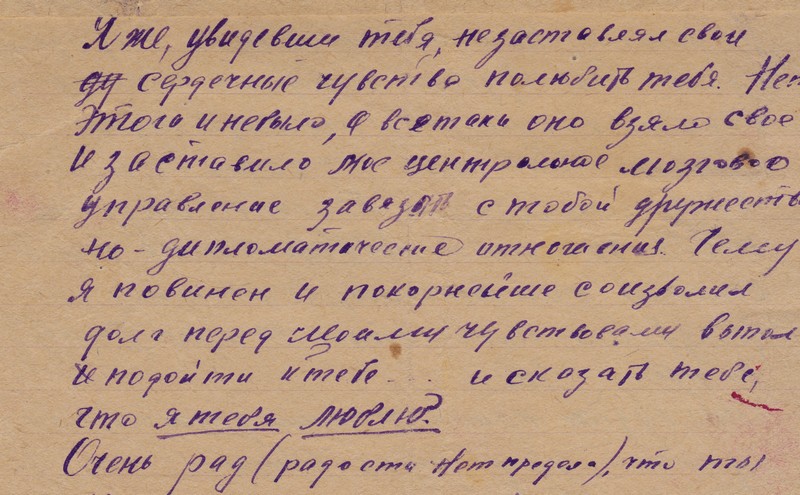 Я же, увидевши тебя, незаставлял свои
сердечные чувства полюбить тебя. Нет
Этого и небыло, а всетаки оно взяло свое
и заставило мое центральное мозговое
управление завязать с тобой дружеств
но-дипломатические отношения. Чему
я повинен и покорнейше соизволил
долг перед моими чувствовами выпол
и подойти к тебе... и сказать тебе,
что я тебя люблю?
Очень рад (радости нет предела), что ты